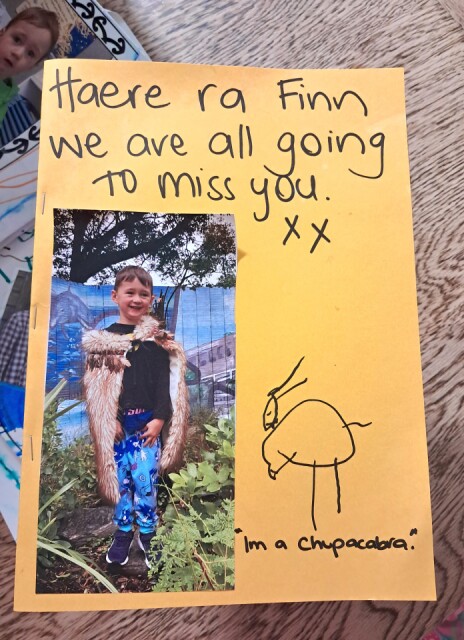 Haere ra Finn
we are all going
to miss you.
xx
"Im a Chupacabra."